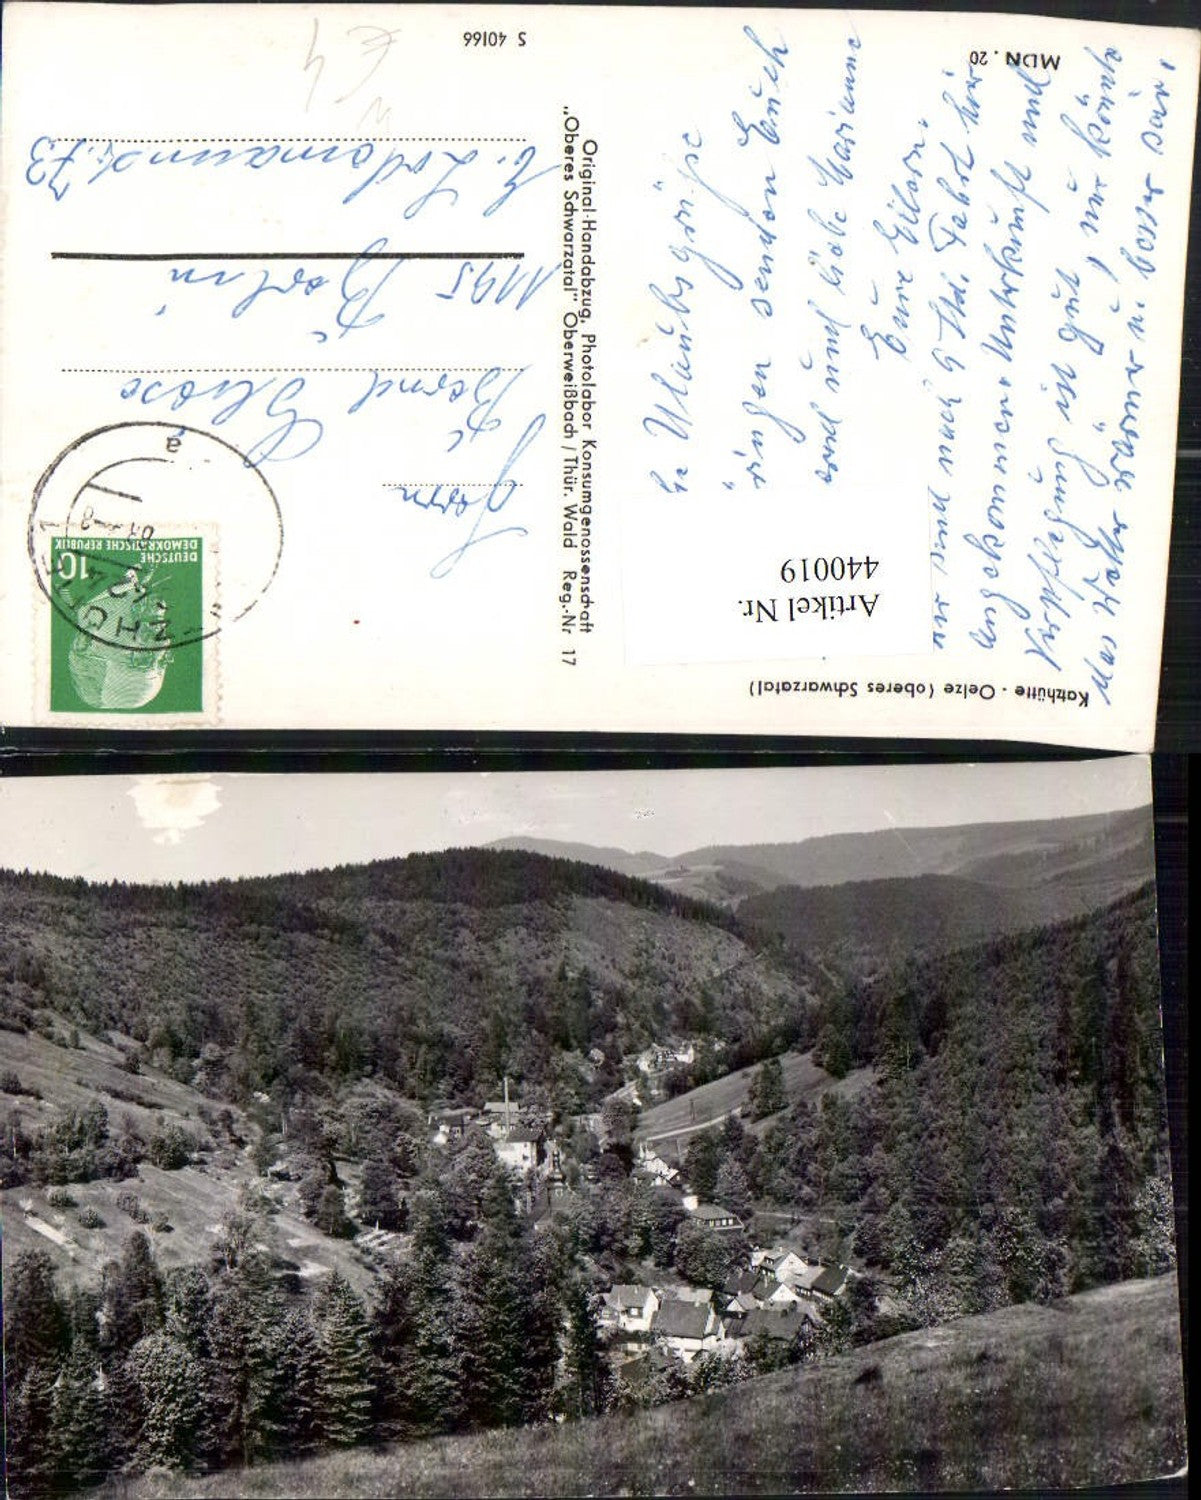 Katzhütte - Oelze (oberes Schwarzatal)
MDN . 20
Artikel Nr.
440019
Urlaubsgrüße
senden Euch
und und liebe Marianne
Eure Eltern.
sind nach 9 Std. Fahrt hier
angekommen. Unterkunft und
Verpflegung ist gut, nur könnte
das Wetter wärmer u. besser sein.
Original-Handabzug, Photolabor Konsumgenossenschaft
„Oberes Schwarzatal" Oberweißbach / Thür. Wald Reg.-Nr 17
DEUTSCHE
DEMOKRATISCHE REPUBLIK
10
a
Herrn
Bernd
1195 Berlin
73
S 40166
€ 4